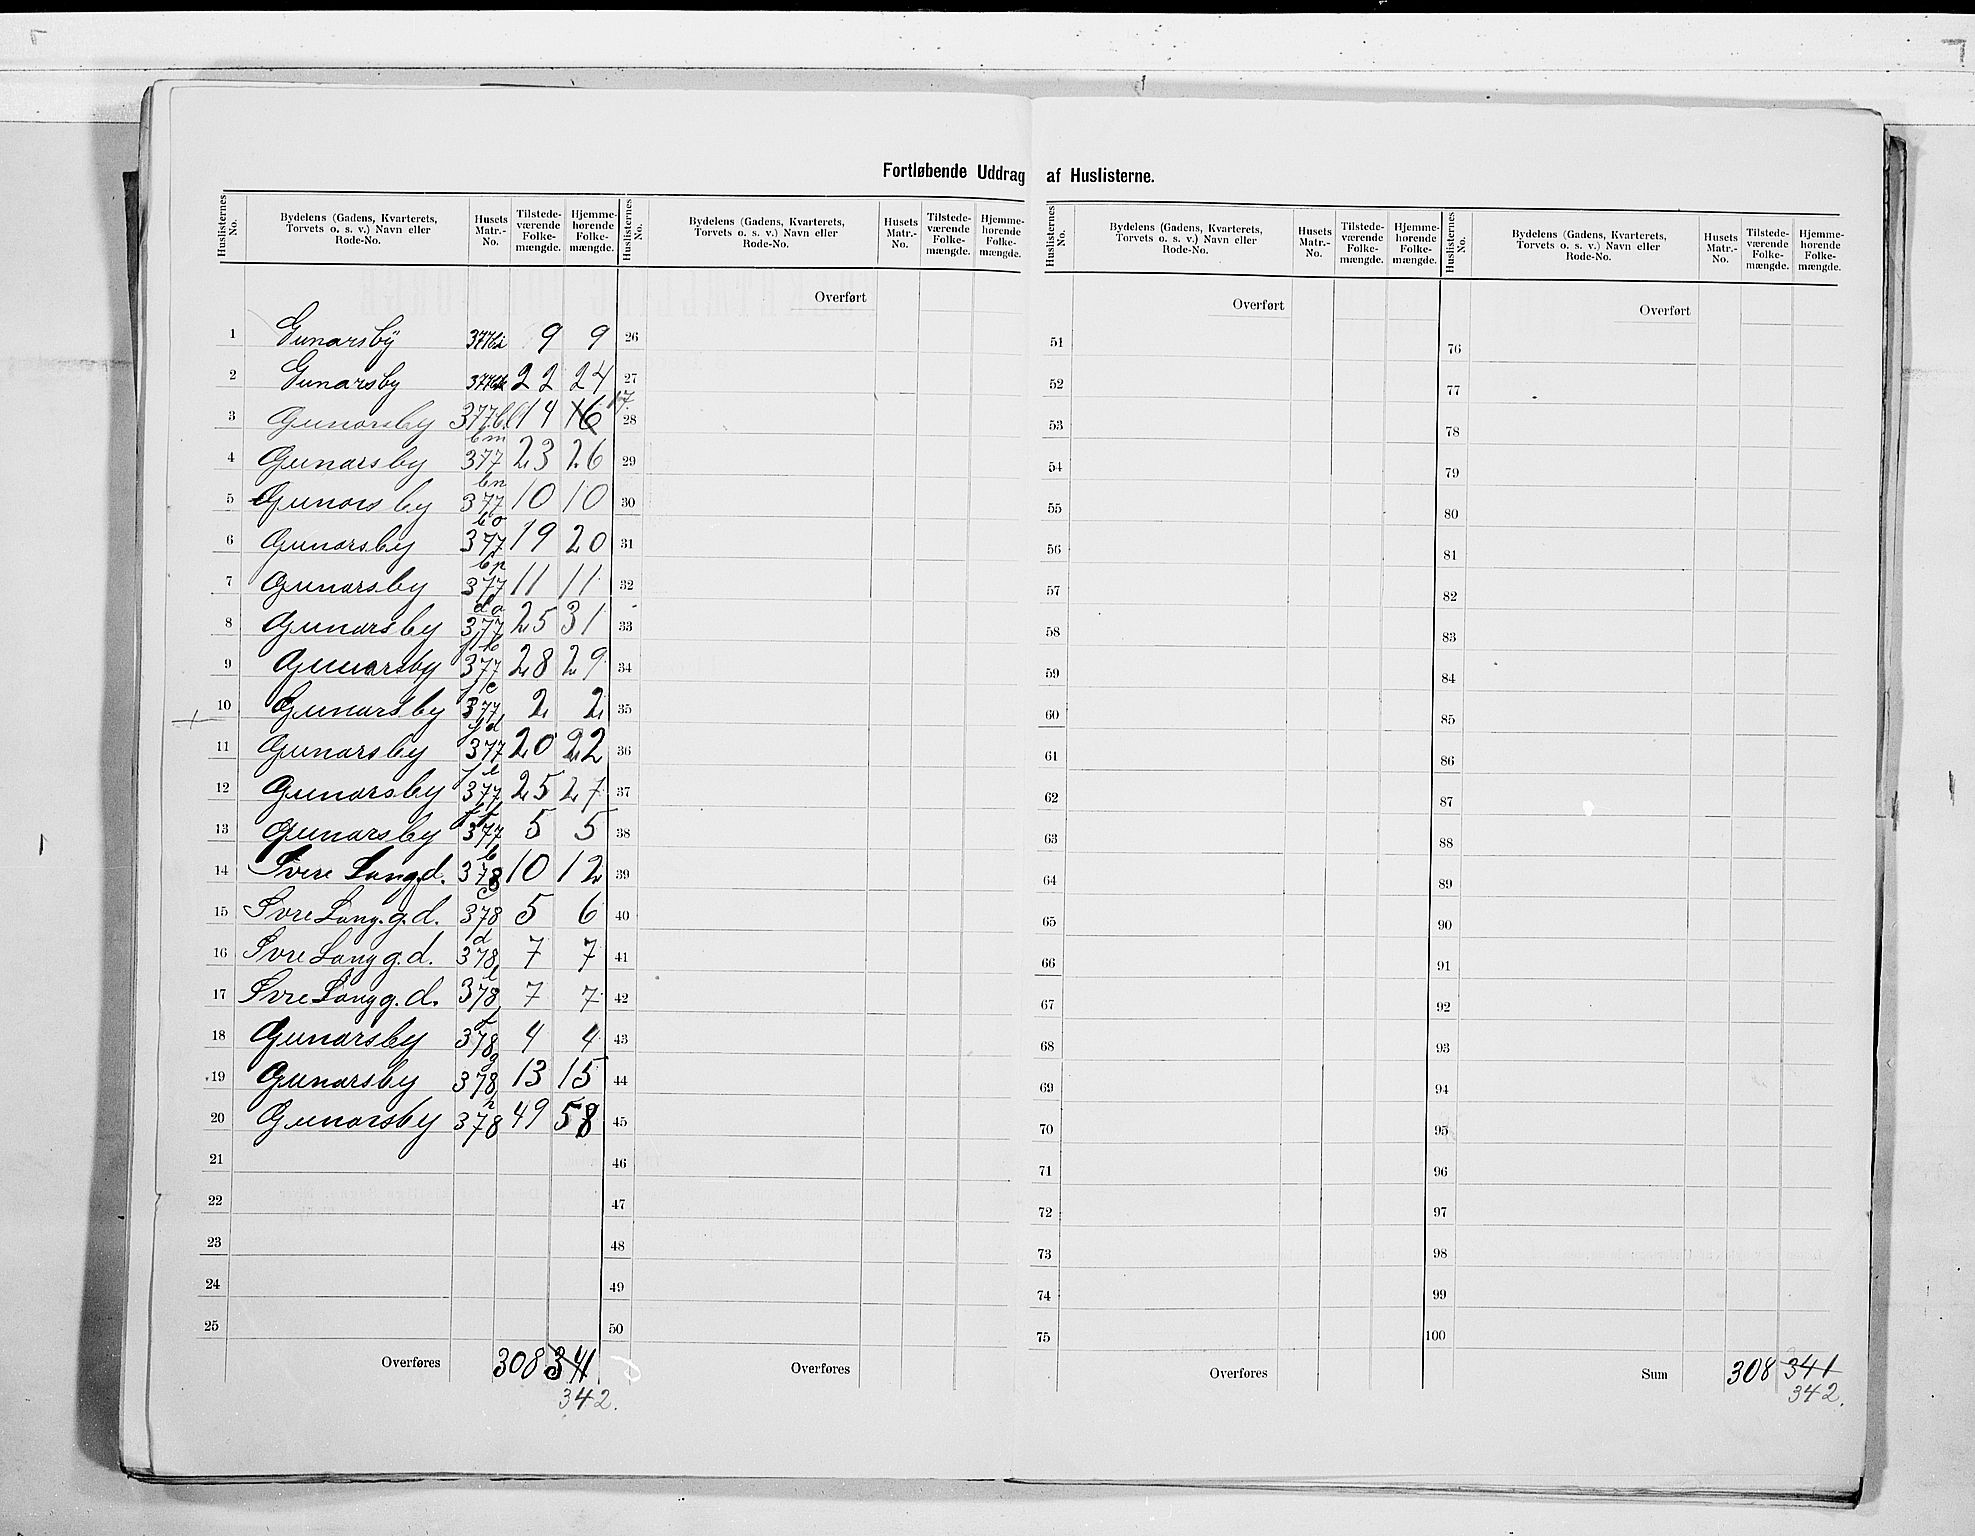 Fortløbende Uddrag af Huslisterne.
Huslisternes No. Bydelens (Gadens, Kvarterets, Torvets o. s. v.) Navn eller Rode-No. Husets Matr.-No. Tilstedeværende Folkemængde. Hjemmehørende Folkemængde. Huslisternes No. Bydelens (Gadens, Kvarterets, Torvets o. s. v.) Navn eller Rode-No. Husets Matr.-No. Tilstedeværende Folkemængde. Hjemmehørende Folkemængde. Huslisternes No. Bydelens (Gadens, Kvarterets, Torvets o. s. v.) Navn eller Rode-No. Husets Matr.-No. Tilstedeværende Folkemængde. Hjemmehørende Folkemængde. Huslisternes No. Bydelens (Gadens, Kvarterets, Torvets o. s. v.) Navn eller Rode-No. Husets Matr.-No. Tilstedeværende Folkemængde. Hjemmehørende Folkemængde.
Overført Overført Overført
1 Gunarsby 377bi 9 9 26 51 76
2 Gunarsby 377bk 22 24 27 52 77
3 Gunarsby 377bl 14 16 17 28 53 78
4 Gunarsby 377 bm 23 26 29 54 79
5 Gunarsby 377 bn 10 10 30 55 80
6 Gunarsby 377 bo 19 20 31 56 81
7 Gunarsby 377 bp 11 11 32 57 82
8 Gunarsby 377 25 31 33 58 83
9 Gunarsby 377 28 29 34 59 84
10 Gunarsby 377 2 2 35 60 85
11 Gunarsby 377 20 22 36 61 86
12 Gunarsby 377 25 27 37 62 87
13 Gunarsby 377 5 5 38 63 88
14 Svere Langd. 378 b 10 12 39 64 89
15 Svre Lang.g.d. 378 c 5 6 40 65 90
16 Svre Lang g.d. 378 d 7 7 41 66 91
17 Svre Lang g.d. 378 e 7 7 42 67 92
18 Gunarsby 378 f 4 4 43 68 93
19 Gunarsby 378 g 13 15 44 69 94
20 Gunarsby 378 h 49 58 45 70 95
21 46 71 96
22 47 72 97
23 48 73 98
24 49 74 99
25 50 75 100
Overføres 308 341 Overføres Overføres Sum 308 341
342. 342.